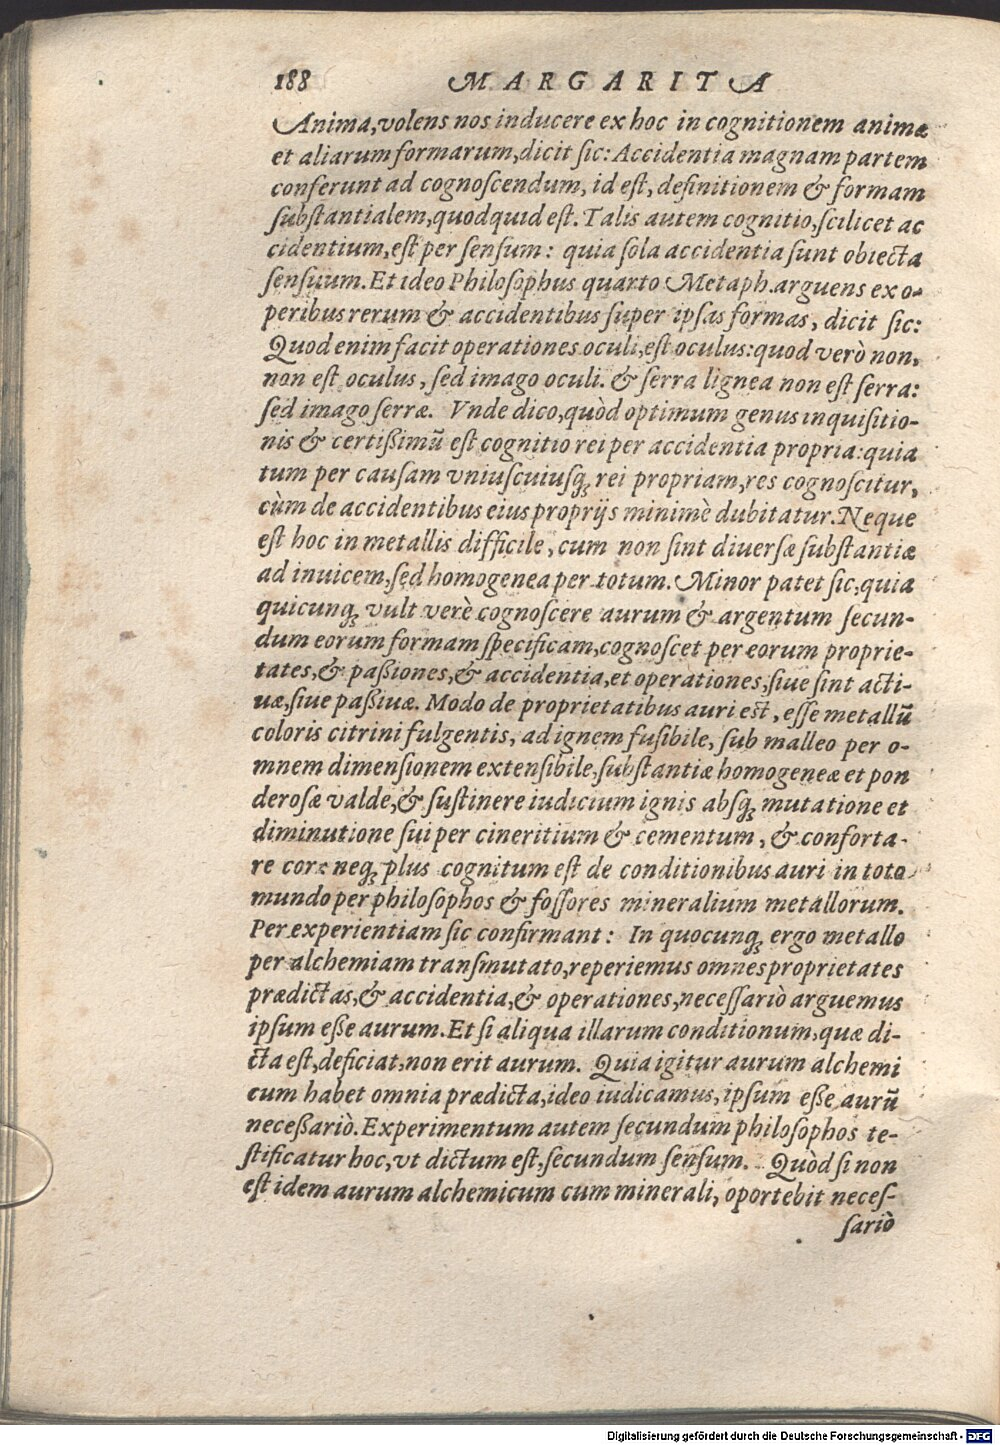 188 MARGARITA
Anima, volens nos inducere ex hoc in cognitionem animæ
et aliarum formarum, dicit ſic: Accidentia magnam partem
conferunt ad cognoſcendum, id eſt, definitionem & formam
ſubſtantialem, quod quid eſt. Talis autem cognitio, ſcilicet ac
cidentium, eſt per ſenſum: quia ſola accidentia ſunt obiecta
ſenſuum. Et ideo Philoſophus quarto Metaph. arguens ex o-
peribus rerum & accidentibus ſuper ipſas formas, dicit ſic:
Quod enim facit operationes oculi, eſt oculus: quod verò non,
non eſt oculus, ſed imago oculi. & ſerra lignea non eſt ſerra:
ſed imago ſerræ. Vnde dico, quòd optimum genus inquiſitio-
nis & certißimũ eſt cognitio rei per accidentia propria: quia
tum per cauſam vniuſcuiuſq; rei propriam, res cognoſcitur,
cùm de accidentibus eius proprijs minimè dubitatur. Neque
eſt hoc in metallis difficile, cum non ſint diuerſæ ſubſtantiæ
ad inuicem, ſed homogenea per totum. Minor patet ſic, quia
quicunq; vult verè cognoſcere aurum & argentum ſecun-
dum eorum formam ſpecificam, cognoſcet per eorum proprie-
tates, & paßiones, & accidentia, et operationes, ſiue ſint acti-
uæ, ſiue paßiuæ. Modo de proprietatibus auri eſt, eſſe metallũ
coloris citrini fulgentis, ad ignem fuſibile, ſub malleo per o-
mnem dimenſionem extenſibile, ſubſtantiæ homogeneæ et pon
deroſæ valde, & ſuſtinere iudicium ignis abſq; mutatione et
diminutione ſui per cineritium & cementum, & conforta-
re cor: neq; plus cognitum eſt de conditionibus auri in toto
mundo per philoſophos & foſſores mineralium metallorum.
Per experientiam ſic confirmant: In quocunq; ergo metallo
per alchemiam tranſmutato, reperiemus omnes proprietates
prædictas, & accidentia, & operationes, neceſſariò arguemus
ipſum eße aurum. Et ſi aliqua illarum conditionum, quæ di-
cta eſt, deficiat, non erit aurum. Quia igitur aurum alchemi
cum habet omnia prædicta, ideo iudicamus, ipſum eße aurũ
neceßariò. Experimentum autem ſecundum philoſophos te-
ſtificatur hoc, vt dictum eſt, ſecundum ſenſum. Quòd ſi non
eſt idem aurum alchemicum cum minerali, oportebit neceſ-
ſariò
Digitalisierung gefördert durch die Deutsche Forschungsgemeinschaft - DFG